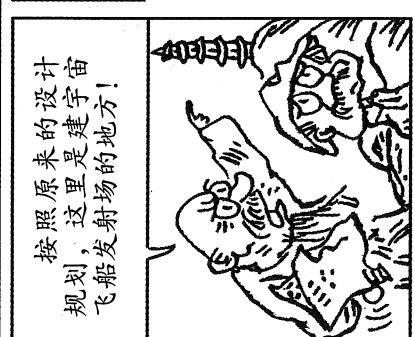 按照原来的设计
规划，这里是建宇宙
飞船发射场的地方！